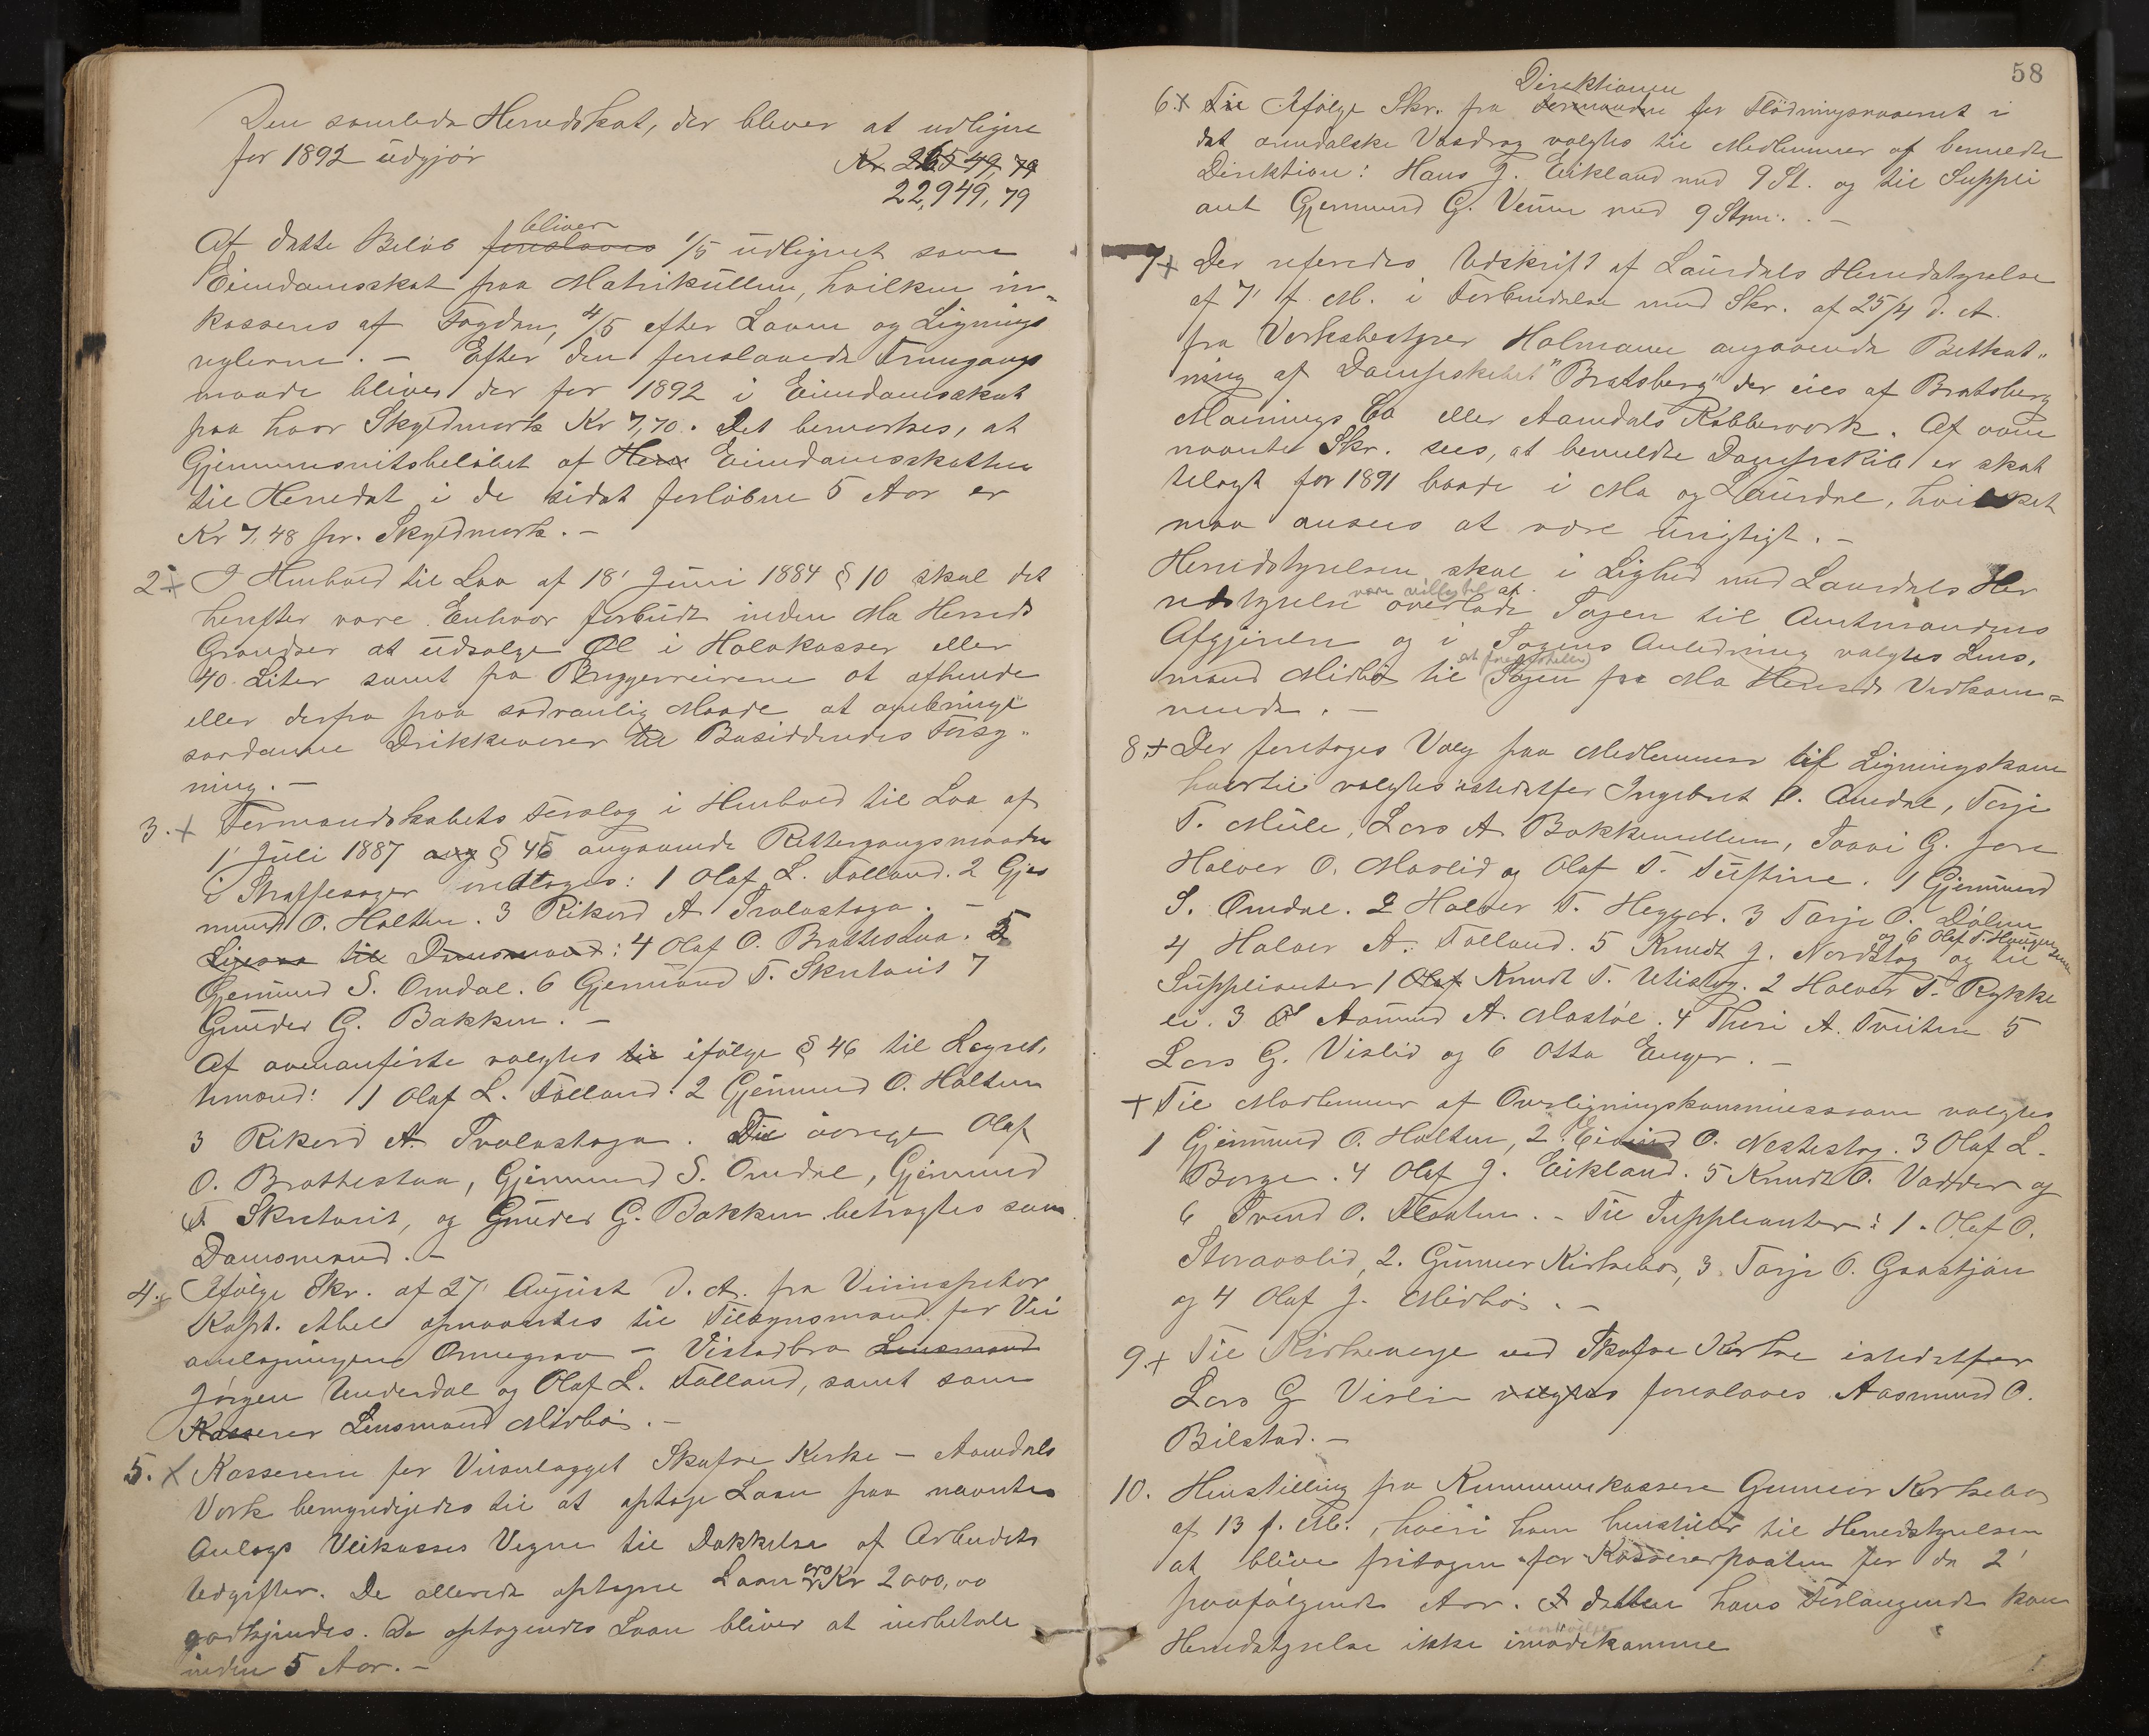 Den samlede Herredskat, der bliver at udligne
for 1892 udgjør Kr 26549,79
22,949,79
Af dette Beløb foreslaaes bliver 1/5 udlignet som
Eiendomsskat paa Matrikullen, hvilken in-
kasseres af Fogden, 4/5 efter Loven og Lignings
reglerne. - Efter den foreslaaede Fremgangs
maade bliver der for 1892 i Eiendomsskat
paa hver Skyldmark Kr 7,70. Det bemærkes, at
Gjennemsnitsbeløbet af Eiendomsskatten
til Herredet i de sidst forløbne 5 Aar er
Kr 7,48 pr. Skyldmark. -
2 + I Henhold til Lov af 18' Juni 1884 § 10 skal det
herefter være Enhver forbudt inden Mo Herreds
Grændser at udsælge Øl i Halvkasser eller
40 Liter samt fra Bryggerieierne at afhende
eller derfra paa sædvanlig Maade at ombringe
saadanne Drikkevarer til Bosiddendes Forsy-
ning. -
3. + Formandskabets Forslag i Henhold til Lov af
1' Juli 1887 ang § 45 angaaende Rettergangsmaaden
i Straffesager vedtoges: 1 Olaf L. Falland. 2 Gjer
mund O. Holten. 3 Rikard A Tvelastøga. -
Ligesaa til Domsmænd: 4 Olaf O. Brattestaa. 5
Gjermund S. Omdal. 6 Gjermund T. Skretveit 7
Gunder G. Bakken. -
Af ovenanførte valgtes til ifølge § 46 til Lagret-
temænd: 1 Olaf L. Falland. 2 Gjermund O. Holten
3 Rikard A. Tvelastøga. De øvrige Olaf
O. Brattestaa, Gjermund S. Omdal, Gjermund
T. Skretveit, og Gunder G. Bakken betragtes som
Domsmænd. -
4. + Ifølge Skr. af 27' August d. A. fra Veiinspektør
Kapt. Abel opnævntes til Tilsynsmænd for Vei
anlægningen Ormegrav - Vistadbro Lensmand
Jørgen Underdal og Olaf L. Falland, samt som
Kasserer Lensmand Midbø. -
5. + Kassereren for Veianlægget Skafse Kirke - Aamdals
Værk bemyndigedes til at optage Laan paa nævnte
Anlægs Veikasses Vegne til Dækkelse af Arbeidets
Udgifter. De allerede optagne Laan Kr 2000,00
godkjendes. De optagendes Laan bliver at indbetale
inden 5 Aar. -
58
6. + Til Ifølge Skr. fra Formanden Direktionen for Flødningsvæsenet i
det arendalske Vasdrag valgtes til Medlemmer af bemeldte
Direktion: Hans J. Eikland med 9 St. og til Suppli
ant Gjermund G. Venum med 9 Stm. -
7 + Der refereredes Udskrift af Laurdals Herredstyrelse
af 7' f. M. i Forbindelse med Skr. af 25/4 d. A.
fra Verksbestyrer Holmann angaaende Beskat-
ning af Dampskibet "Bratsberg" der eies af Bratsberg
Mainings Co eller Aamdals Kobberværk. Af oven
nævnte Skr. sees, at bemeldte Dampskib er skat
telagt for 1891 baade i Mo og Laurdal, hvilket
maa ansees at være urigtigt. -
Herredstyrelsen skal i Lighed med Laurdals Her
redstyrelse være villig til at overlade Sagen til Amtmandens
Afgjørelse og i Sagens Anledning valgtes Lens-
mand Midbø til at fremstille Sagen fra Mo Herreds Vedkom-
mende. -
8. + Der foretoges Valg paa Medlemmer til Ligningskom
hvortil valgtes istedetfor Ingebret O. Omdal, Tarje
T. Mule, Lars A Bakkemellem, Taavi G. Jore
Halvor O. Moslid og Olaf T. Tuftine. 1 Gjermund
S. Omdal. 2 Halvor T. Heggar. 3 Tarje O. Dølen
4 Halvor A. Falland. 5 Knudt J. Nordstog og 6 Olaf T. Haugen og til
Supplianter 1 Olaf Knudt T. Utistog. 2 Halvor T. Rykke
li. 3 Aamund A. Mostøl. 4 Theri A. Tveiten 5
Lars G. Vislid og 6 Otto Enger. -
+ Til Medlemmer af Overligningskommissionen valgtes
1 Gjermund O. Holten, 2. Eivind O. Nestestog. 3 Olaf L.
Borge. 4 Olaf J. Eikland. 5 Knudt O. Vadder og
6 Svend O. Floaten. - Til Supplianter: 1. Olaf O.
Storaaslid, 2. Gunner Kirkebø, 3 Tarje O. Gaastjøn
og 4 Olaf J. Midbø. -
9. + Til Kirkeværge ved Skafse Kirke istedetfor
Lars G Vislie valgtes foreslaaes Aasmund O.
Bilstad. -
10. Henstilling fra Kommunekasserer Gunner Kirkebø
af 13 f. M., hvori han henstiller til Herredstyrelsen
at blive fritagen for Kassererposten for de 2
paafølgende Aar. I dette hans Forlangende kan
Herredstyrelse ikke imødekomme